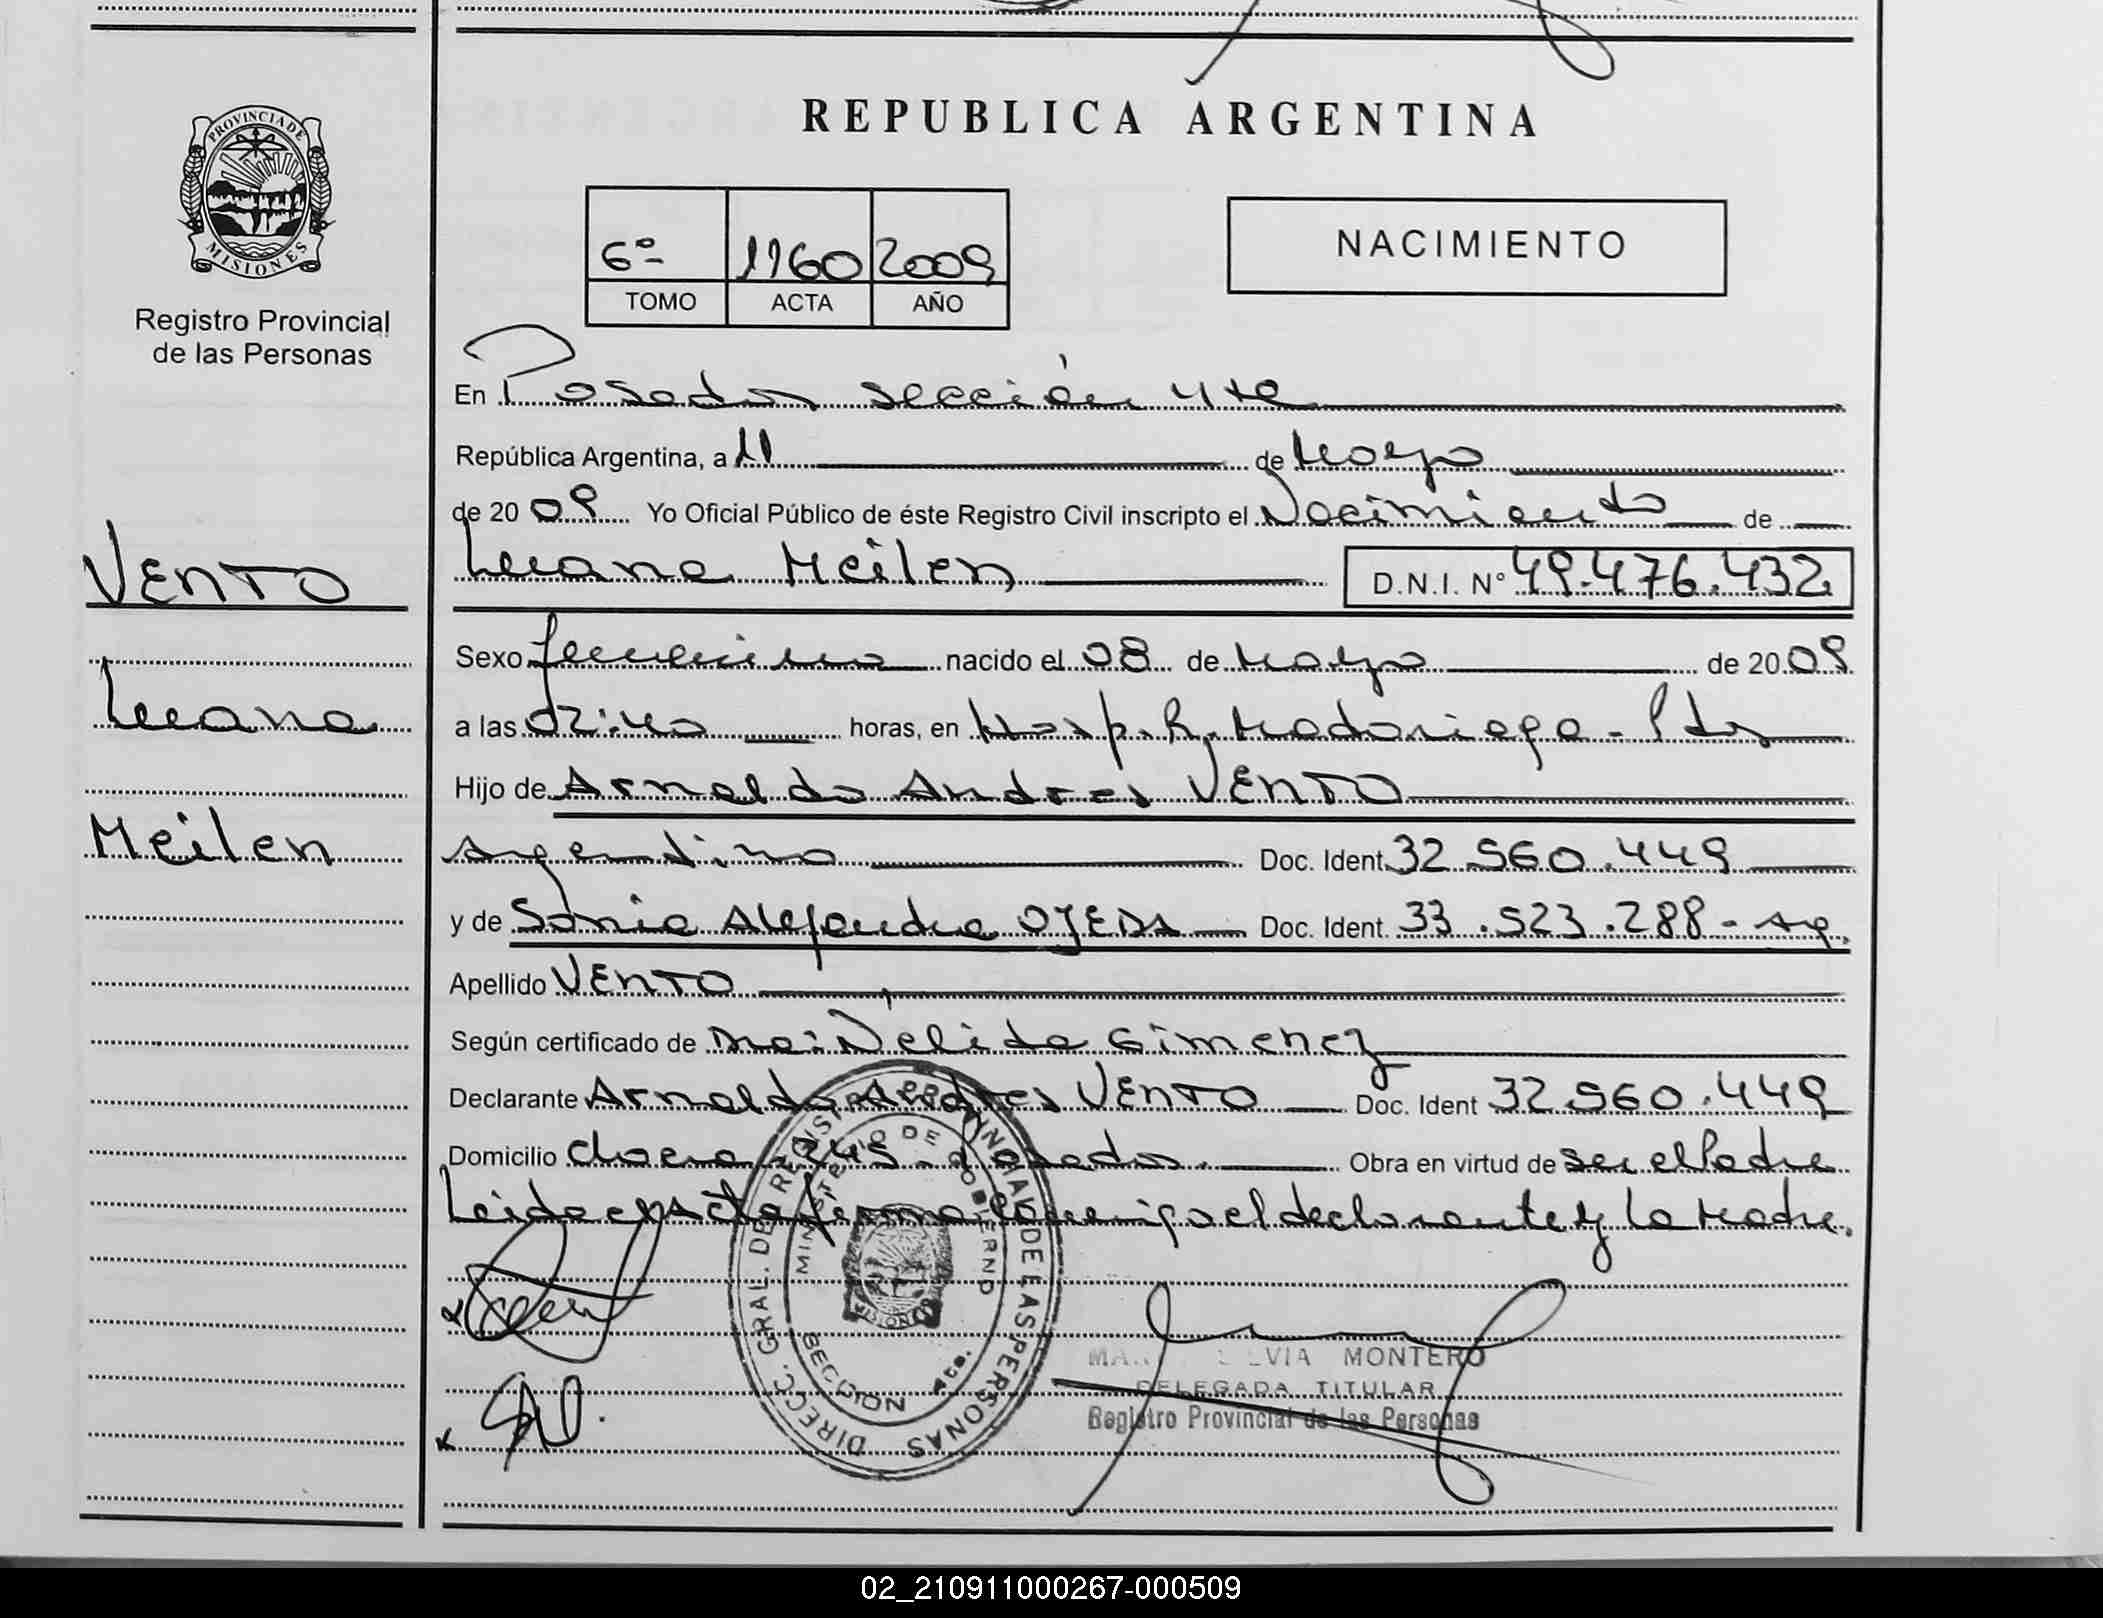 REPUBLICA ARGENTINA
PROVINCIA DE
MISIONES
Registro Provincial
de las Personas
6º 1160 2009
TOMO ACTA AÑO
NACIMIENTO
En Posadas sección 4ta
República Argentina, a 11 de Mayo
de 2009 Yo Oficial Público de éste Registro Civil inscripto el Nacimiento de
Luana Meilen D.N.I. Nº 49.476.432
VENTO
Luana
Meilen
Sexo femenino nacido el 08 de Mayo de 2009
a las 02:40 horas, en Hosp. R. Madariaga - Pdas
Hijo de Arnaldo Andres VENTO
argentino Doc. Ident. 32.560.449
y de Sonia Alejandra OJEDA Doc. Ident. 33.523.288 - Arg.
Apellido VENTO
Según certificado de Dra: Nélida Gimenez
Declarante Arnaldo Andres VENTO Doc. Ident 32.560.449
Domicilio chacra 245 - Posadas. Obra en virtud de ser el Padre
Leida el acta firma conmigo el declarante y la Madre.
DIRECC. GRAL. DEL REGISTRO PROVINCIAL DE LAS PERSONAS
MINISTERIO DE GOBIERNO
SECCION 4ta.
MISIONES
SILVIA MONTERO
DELEGADA TITULAR
Registro Provincial de las Personas
02_210911000267-000509